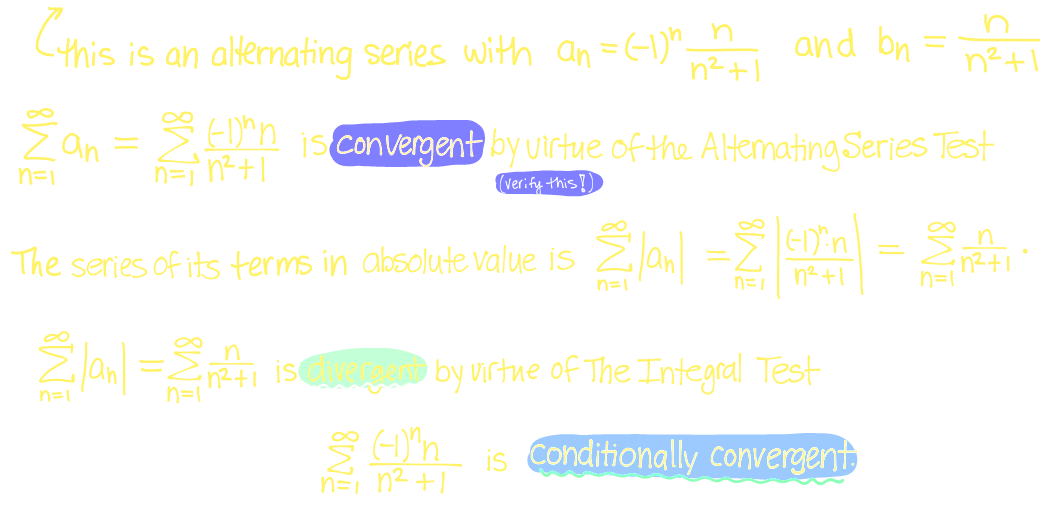 this is an alternating series with aₙ = (-1)ⁿ n/(n²+1) and bₙ = n/(n²+1)
∞∑n=1 aₙ = ∞∑n=1 (-1)ⁿn/(n²+1) is convergent by virtue of the Alternating Series Test
(verify this!)
The series of its terms in absolute value is ∞∑n=1 |aₙ| = ∞∑n=1 |(-1)ⁿ·n/(n²+1)| = ∞∑n=1 n/(n²+1).
∞∑n=1 |aₙ| = ∞∑n=1 n/(n²+1) is divergent by virtue of The Integral Test
∞∑n=1 (-1)ⁿn/(n²+1) is conditionally convergent.